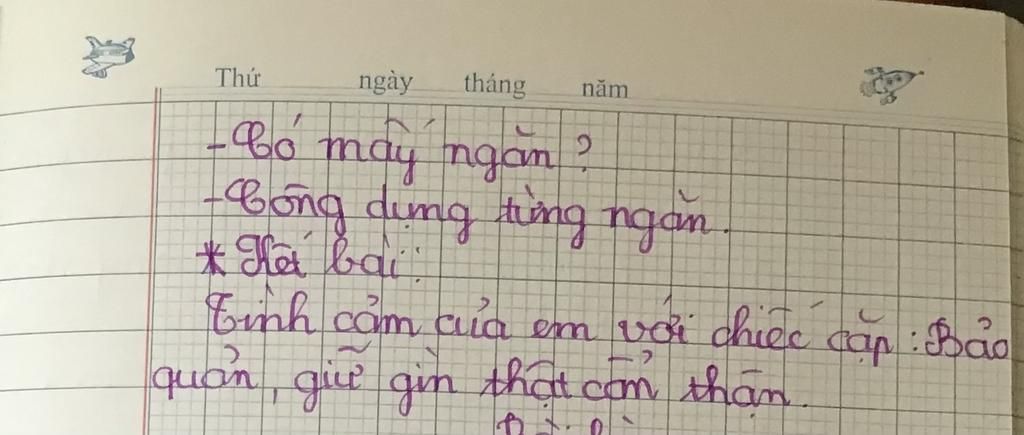 Thứ ngày tháng năm
- Có mấy ngăn?
- Công dụng từng ngăn.
* Kết bài:
Tình cảm của em với chiếc cặp: Bảo
quản, giữ gìn thật cẩn thận.